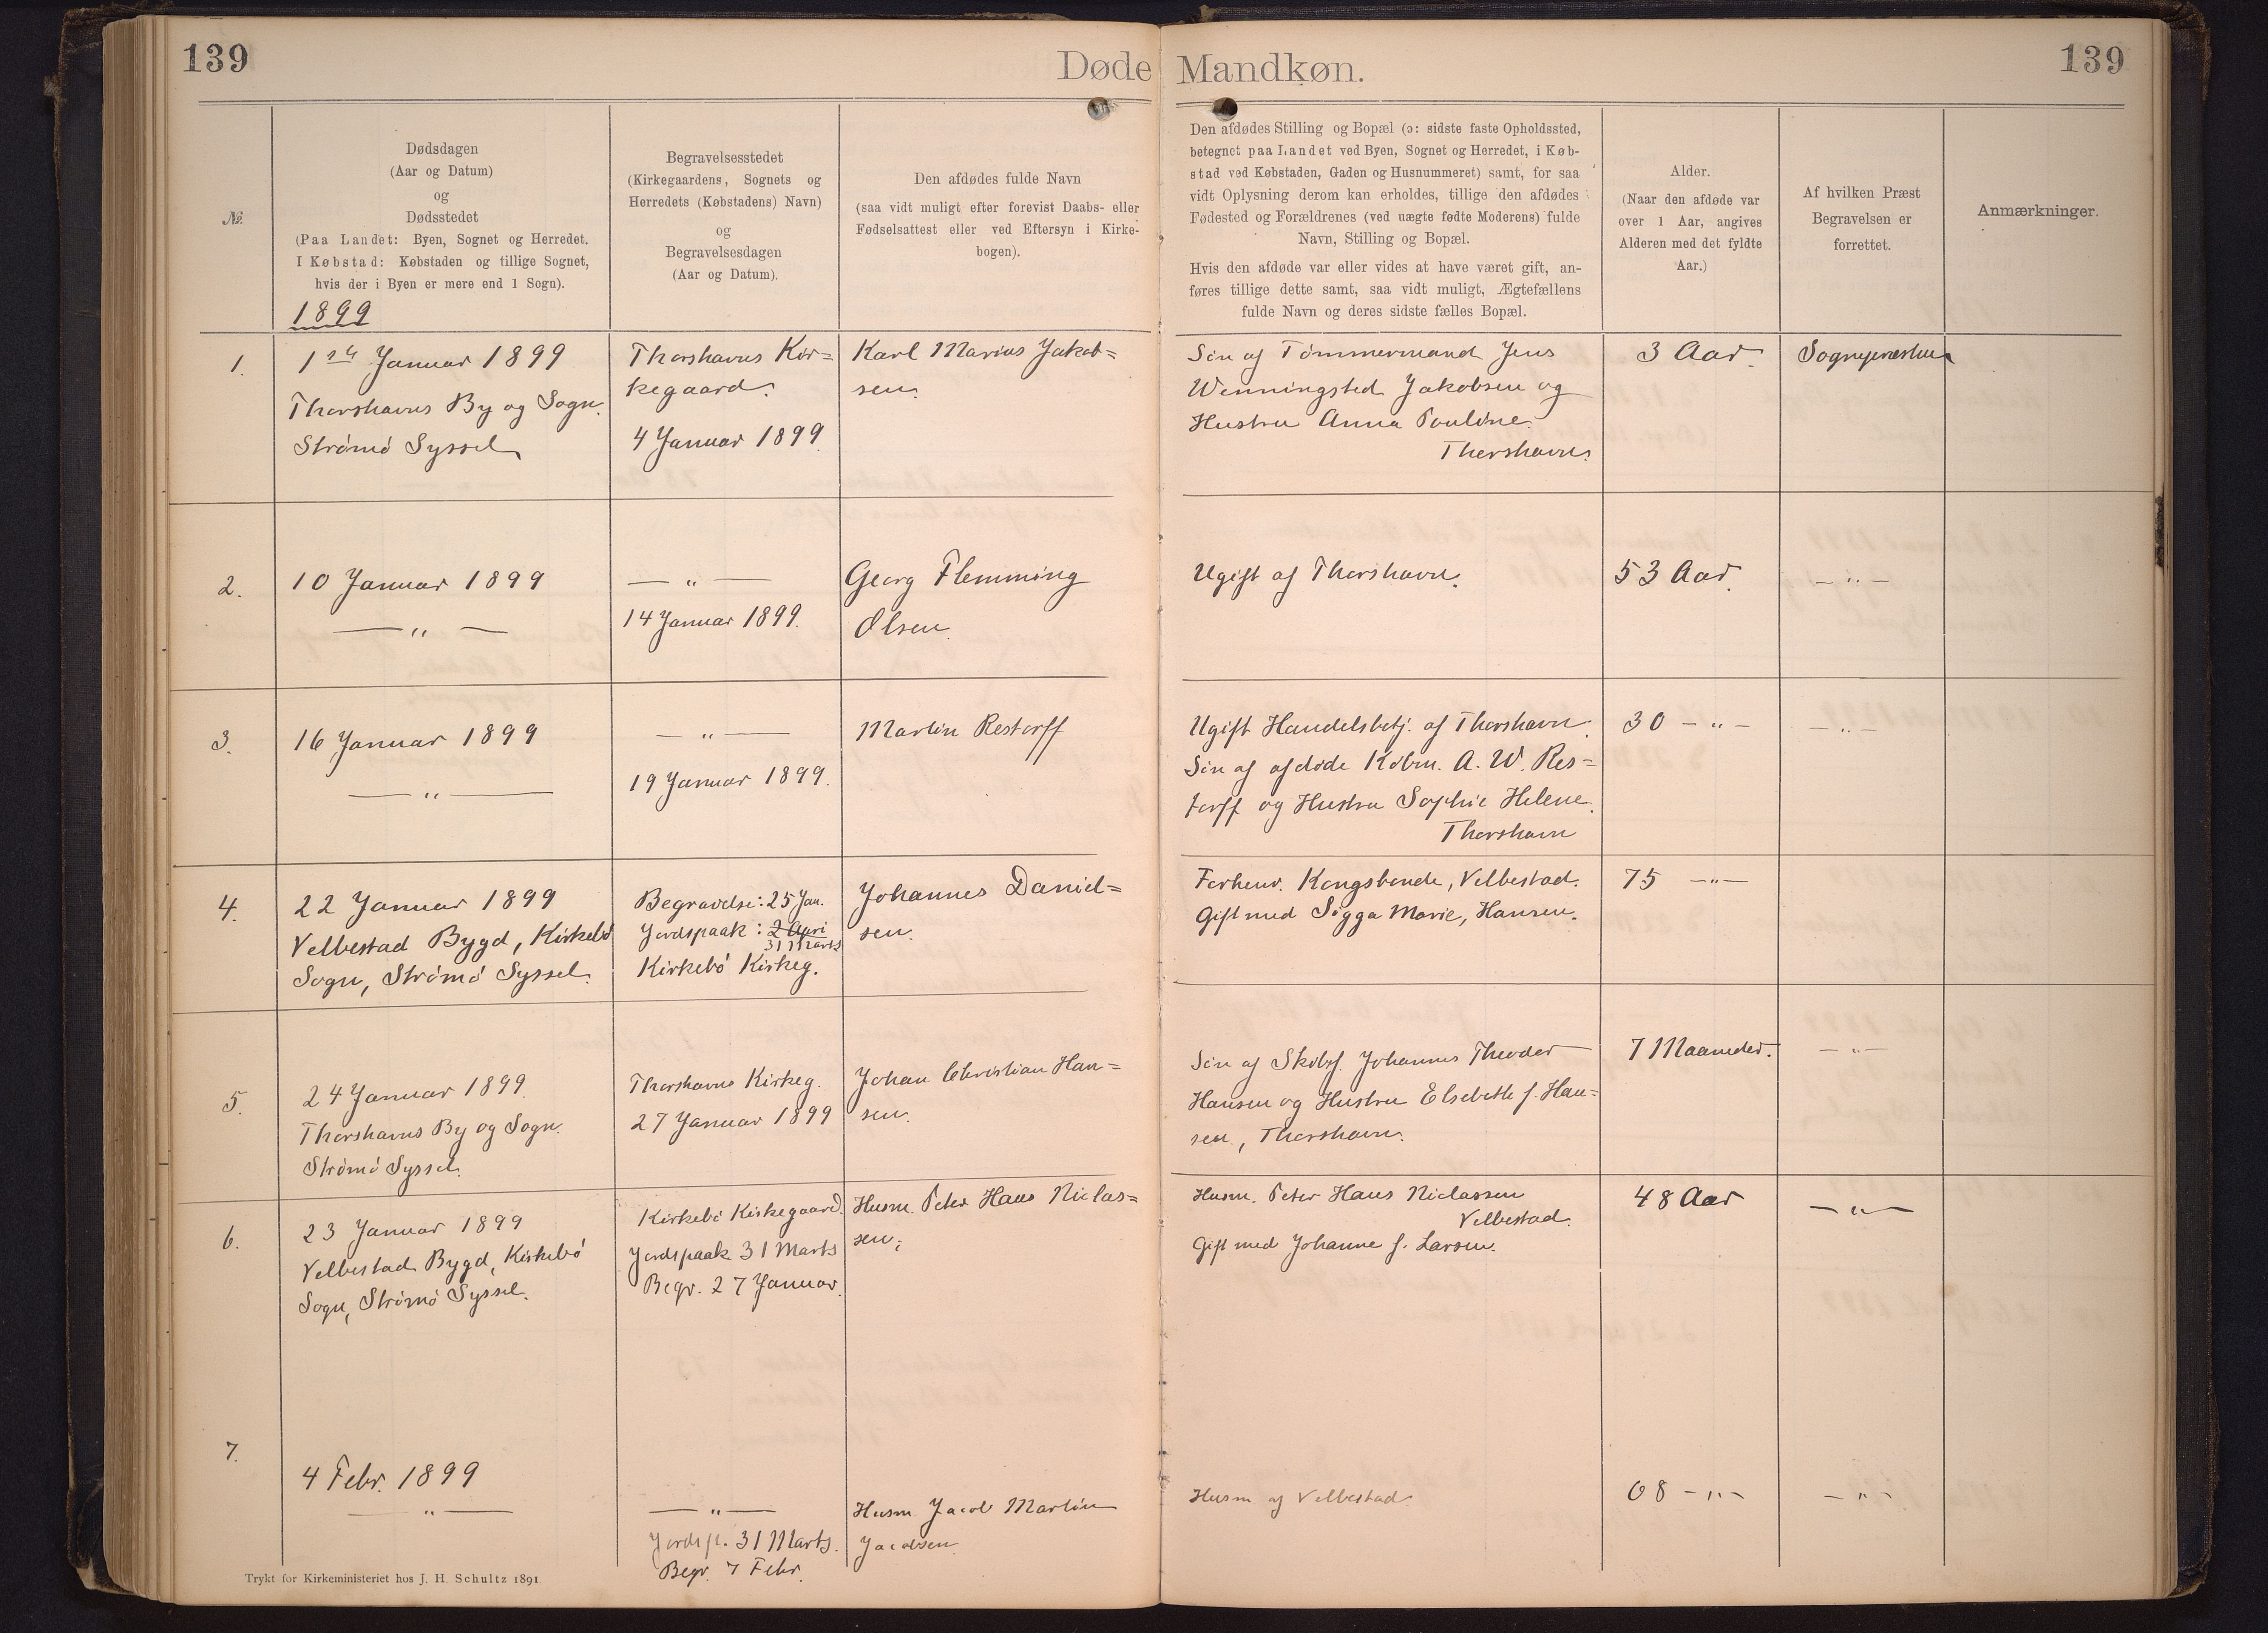 139
Døde Mandkøn.
139
№.
Dødsdagen
(Aar og Datum)
og
Dødsstedet
(Paa Landet: Byen, Sognet og Herredet.
I Købstad: Købstaden og tillige Sognet,
hvis der i Byen er mere end 1 Sogn).
1899
Begravelsesstedet
(Kirkegaardens, Sognets og
Herredets (Købstadens) Navn)
og
Begravelsesdagen
(Aar og Datum).
Den afdødes fulde Navn
(saa vidt muligt efter forevist Daabs- eller
Fødselsattest eller ved Eftersyn i Kirke-
bogen).
Den afdødes Stilling og Bopæl (ɔ: sidste faste Opholdssted,
betegnet paa Landet ved Byen, Sognet og Herredet, i Køb-
stad ved Købstaden, Gaden og Husnummeret) samt, for saa
vidt Oplysning derom kan erholdes, tillige den afdødes
Fødested og Forældrenes (ved uægte fødte Moderens) fulde
Navn, Stilling og Bopæl.
Hvis den afdøde var eller vides at have været gift, an-
føres tillige dette samt, saa vidt muligt, Ægtefællens
fulde Navn og deres sidste fælles Bopæl.
Alder.
(Naar den afdøde var
over 1 Aar, angives
Alderen med det fyldte
Aar.)
Af hvilken Præst
Begravelsen er
forrettet.
Anmærkninger.
1.
1ste Januar 1899
Thorshavns By og Sogn.
Strömö Syssel
Thorshavns Kir=
kegaard.
4 Januar 1899.
Karl Marius Jakob=
sen.
Sön af Tömmermand Jens
Wenningsted Jakobsen og
Hustru Anna Pouline.
Thorshavn.
3 Aar.
Sognepræsten
2.
10 Januar 1899
— „ —
— „ —
14 Januar 1899.
Georg Flemming
Olsen.
Ugift af Thorshavn.
53 Aar.
— „ —
3.
16 Januar 1899
— „ —
— „ —
19 Januar 1899.
Martin Restorff
Ugift Handelsbetj. af Thorshavn.
Sön af afdöde Köbm. A. W. Res=
torff og Hustru Sophie Helene.
Thorshavn
30 — „ —
— „ —
4.
22 Januar 1899
Velbestad Bygd, Kirkebö
Sogn, Strömö Syssel.
Begravelse: 25 Jan.
Jordspaak: 2 Apri
31 Marts
Kirkebö Kirkeg.
Johannes Daniel=
sen.
Forhenv. Kongsbonde, Velbestad.
Gift med Sigga Marie, Hansen.
75 — „ —
5.
24 Januar 1899.
Thorshavns By og Sogn.
Strömö Syssel.
Thorshavns Kirkeg.
27 Januar 1899
Johan Christian Han=
sen.
Sön af Skibsf. Johannes Theodor
Hansen og Hustru Elsebeth f. Han=
sen, Thorshavn.
7 Maaneder.
— „ —
6.
23 Januar 1899
Velbestad Bygd, Kirkebö
Sogn, Strömö Syssel.
Kirkebö Kirkegaard.
Jordspaak 31 Marts
Begr. 27 Januar.
Husm. Peter Hans Niclas=
sen;
Husm. Peter Hans Niclassen
Velbestad.
Gift med Johanne f. Larsen.
48 Aar
— „ —
7.
4 Febr. 1899
— „ —
— „ —
Jordsp. 31 Marts.
Begr. 7 Febr.
Husm. Jacob Martin
Jacobsen
Husm af Velbestad
68 — „ —
— „ —
Trykt for Kirkeministeriet hos J. H. Schultz 1891